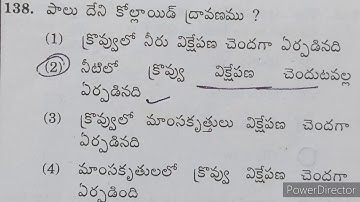 138. పాలు దేని కోల్లాయిడ్ ద్రావణము ?
(1) క్రొవ్వులో నీరు విక్షేపణ చెందగా ఏర్పడినది
(2) నీటిలో క్రొవ్వు విక్షేపణ చెందుటవల్ల
ఏర్పడినది
(3) క్రొవ్వులో మాంసకృత్తులు విక్షేపణ చెందగా
ఏర్పడినది
(4) మాంసకృతులలో క్రొవ్వు విక్షేపణ చెందగా
ఏర్పడింది
PowerDirector